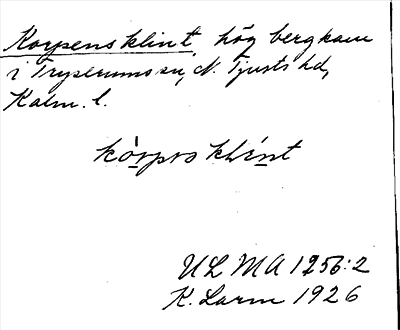 Korpensklint, hög bergkam
i Tryserums sn, N. Tjusts hd,
Kalm. l.
kòrpos klìnt
ULMA 1256:2
K. Larm 1926